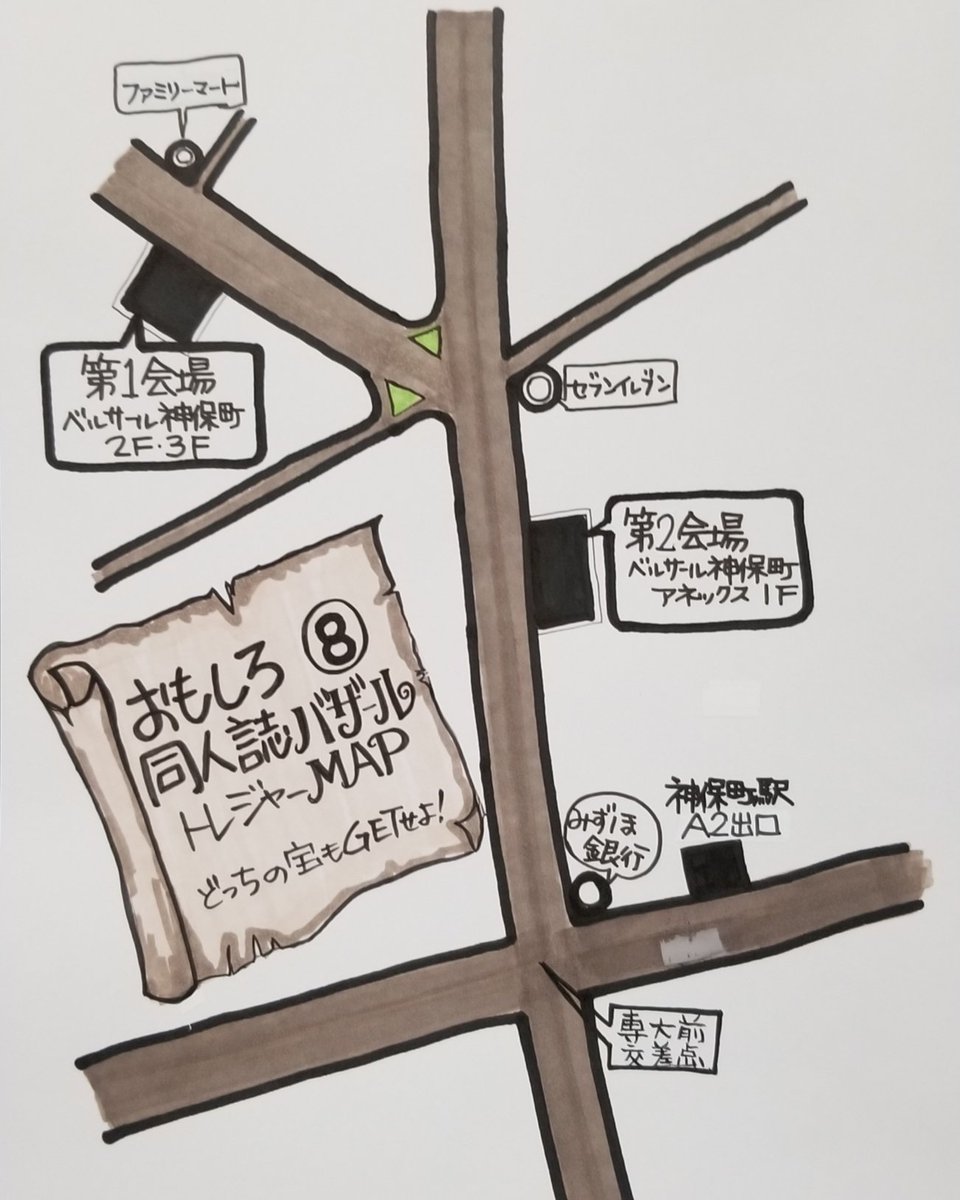 ファミリーマート
第1会場
ベルサール神保町
2F・3F
セブンイレブン
第2会場
ベルサール神保町
アネックス1F
おもしろ⑧
同人誌バザール
トレジャーMAP
どっちの宝もGETせよ!
神保町駅
A2出口
みずほ
銀行
専大前
交差点